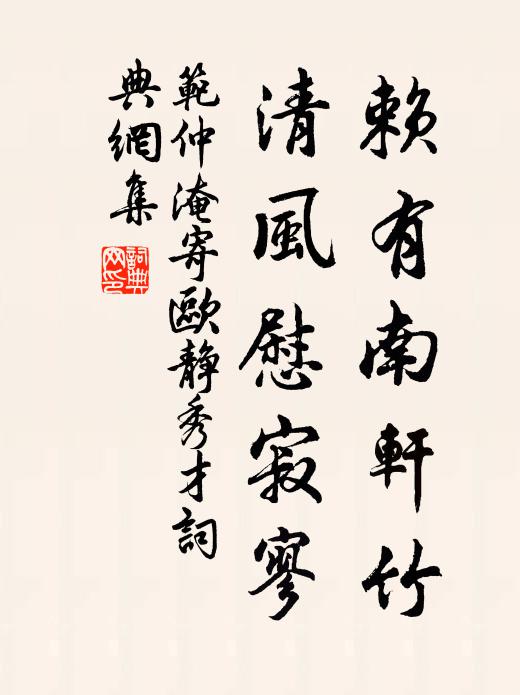 賴有南軒竹
清風慰寂寥
範仲淹寄歐静秀才詞
典網集
詞典
网印